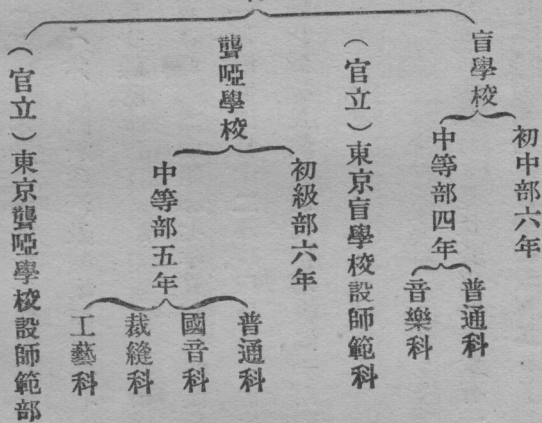 盲學校
初中部六年
中等部四年
普通科
音樂科
（官立）東京盲學校設師範科
聾啞學校
初級部六年
中等部五年
普通科
國音科
裁縫科
工藝科
（官立）東京聾啞學校設師範部